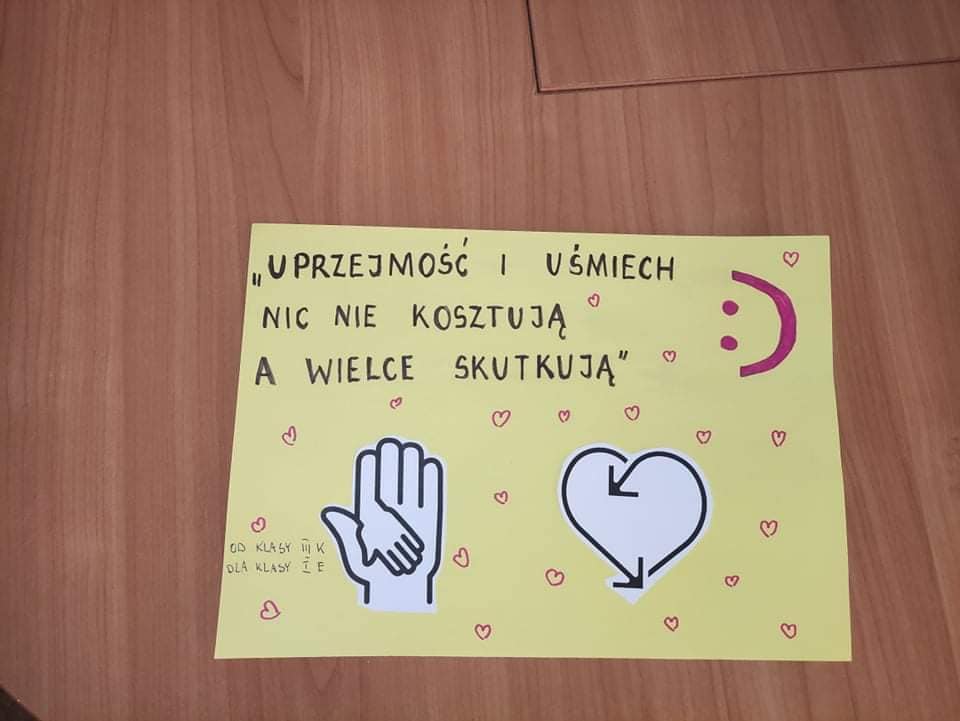 „UPRZEJMOŚĆ I UŚMIECH
NIC NIE KOSZTUJĄ
A WIELCE SKUTKUJĄ”
:)
OD KLASY III K
DLA KLASY I E